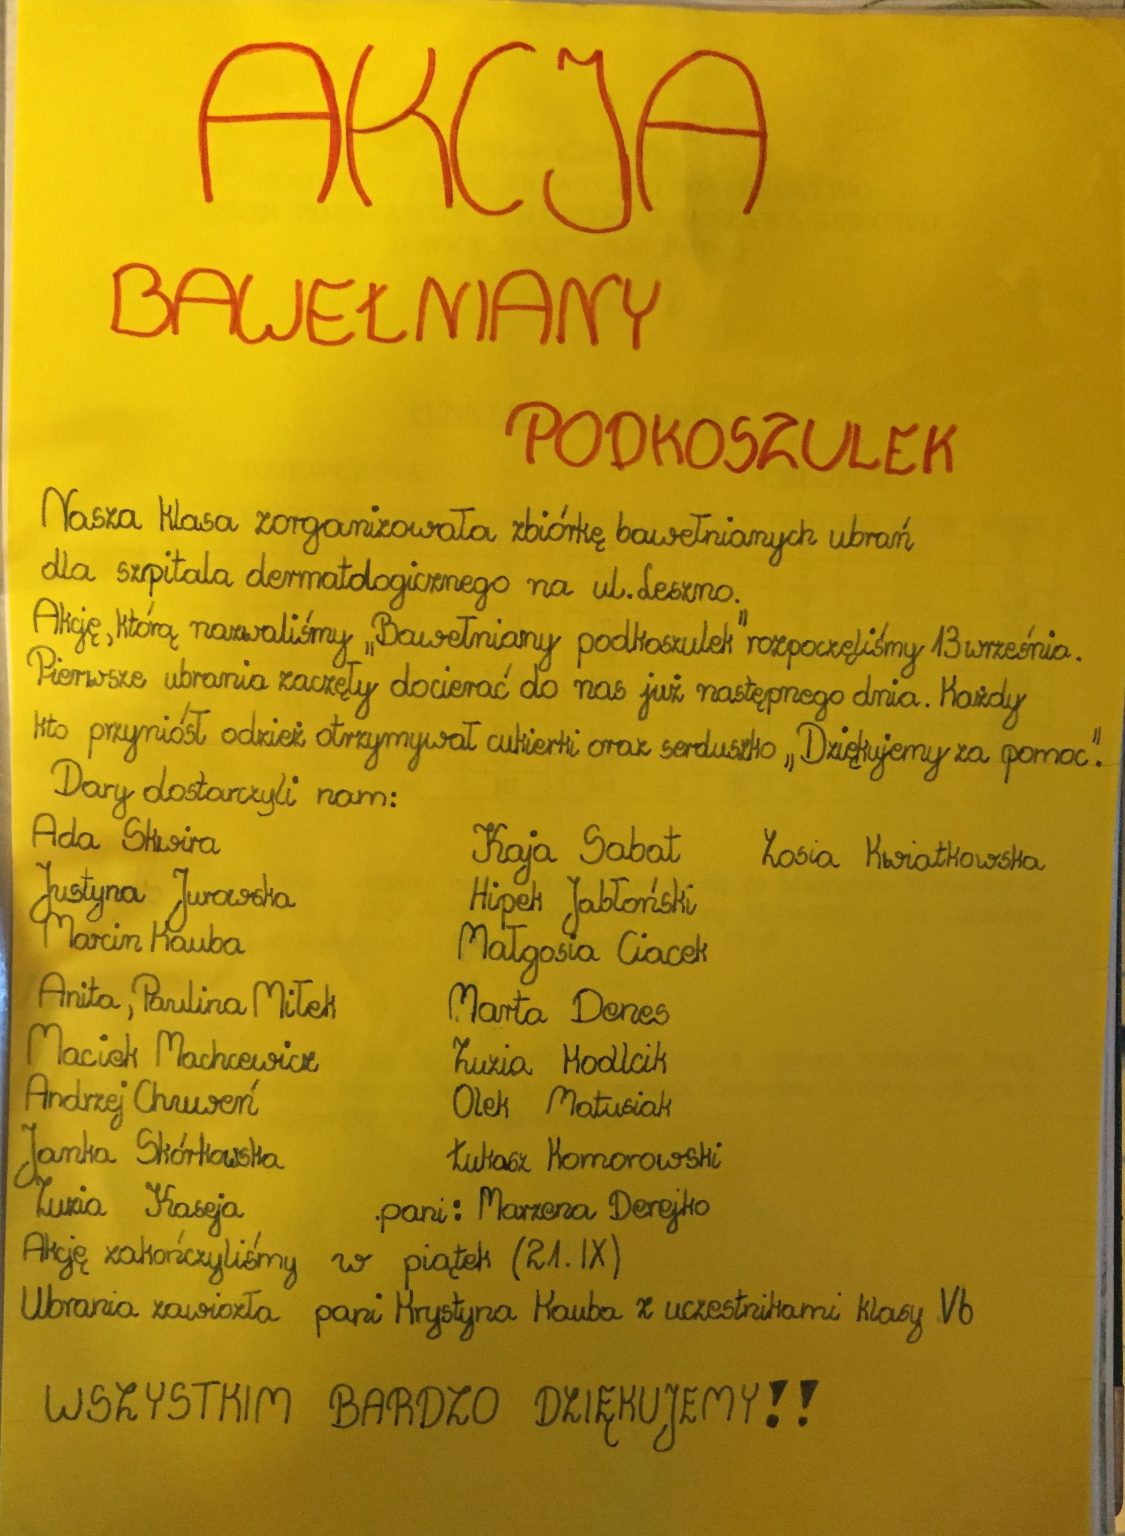 AKCJA
BAWEŁNIANY
PODKOSZULEK
Nasza klasa zorganizowała zbiórkę bawełnianych ubrań
dla szpitala dermatologicznego na ul. Leszno.
Akcję, którą nazwaliśmy „Bawełniany podkoszulek" rozpoczęliśmy 13 września.
Pierwsze ubrania zaczęły docierać do nas już następnego dnia. Każdy
kto przyniósł odzież otrzymywał cukierki oraz serduszko „Dziękujemy za pomoc".
Dary dostarczyli nam:
Ada Skwira Kaja Sabat Zosia Kwiatkowska
Justyna Jurowska Hipek Jabłoński
Marcin Kauba Małgosia Ciacek
Anita, Paulina Miłek Marta Denes
Maciek Machcewicz Zuzia
Andrzej Olek Matusiak
Janka Skórkowska Łukasz Komorowski
Zuzia Kaseja pani: Marzena Derejko
Akcję zakończyliśmy w piątek (21.IX)
Ubrania zawiozła pani Krystyna Kauba z uczestnikami klasy Vb
WSZYSTKIM BARDZO DZIĘKUJEMY!!